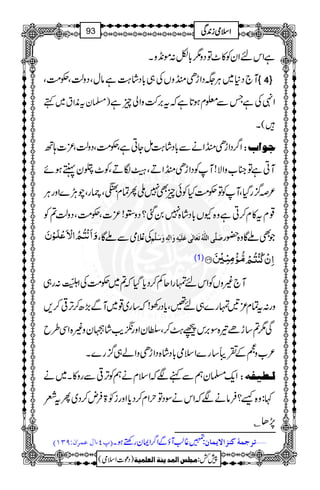 93 اسلامی زندگی
ہے اس لئے ان کو کاٹ دو تو مگر بالکل نہ مونڈو۔
{4} آج دنیا میں ہر جگہ داڑھی منڈوں ہی کی بادشاہت ہے، مال، دولت، حکومت،
انہی کی ہے جس سے معلوم ہوتا ہے کہ یہ برکت والی چیز ہے (مسلمان یہ مذاق میں کہتے
ہیں)۔
جواب: اگر داڑھی منڈانے سے بادشاہت مل جاتی ہے، حکومت، دولت، عزت ہاتھ
آتی ہے تو جناب والا! آپ کو داڑھی منڈاتے، ہیٹ لگاتے، کوٹ پتلون پہنتے ہوئے
عرصہ گزر گیا، آپ کو تو حکومت کیا کوئی چیز بھی نہیں ملی پھر تمام بھنگی، چمار، چوہڑے اور ہر
قوم یہ کام کرتی ہے وہ کیوں بادشاہ نہیں بن گئی؟ دوستو! عزت، حکومت، دولت تم کو
جو بھی ملے گا وہ حضور صَلَّی اللّٰہُ تَعَالٰی عَلَیْہِ وَاٰلِہٖ وَسَلَّم کی غلامی سے ملے گا، وَاَنْتُمُ الْاَعْلَوْنَ
اِنْ كُنْتُمْ مُّؤْمِنِیْنَ (1)
آج غیروں کو اس لئے تمہارا حاکم کردیا گیا کہ تم میں حکومت الٰہیہ کی اہلیت نہ رہی
ورنہ یہ تمام عزتیں تمہارے ہی لئے تھیں، یاد رکھو! کہ ساری قومیں تو آگے بڑھ کر ترقی کریں
گی مگر تم ساڑھے تیرہ سو برس پیچھے ہٹ کر، سلطان اورنگ زیب اور شاہجہاں وغیرہ اسی طرح
عرب و عجم کے تقریباً سارے اسلامی بادشاہ داڑھی والے ہی گزرے۔
لطیفہ: ایک مسلمان ہم سے کہنے لگے کہ اسلام نے ہم کو ترقی سے روکا۔ میں نے
کہا: وہ کیسے؟ فرمانے لگے کہ اس نے سود تو حرام کردیا اور زکوٰۃ فرض کردی پھر یہ شعر
پڑھا۔
ترجمۂ کنزالایمان: تمہیں غالب آؤ گے اگر ایمان رکھتے ہو۔ (پ۴، اٰل عمرٰن:۱۳۹)
پیش کش: مجلس المدینۃ العلمیۃ (دعوتِ اسلامی)